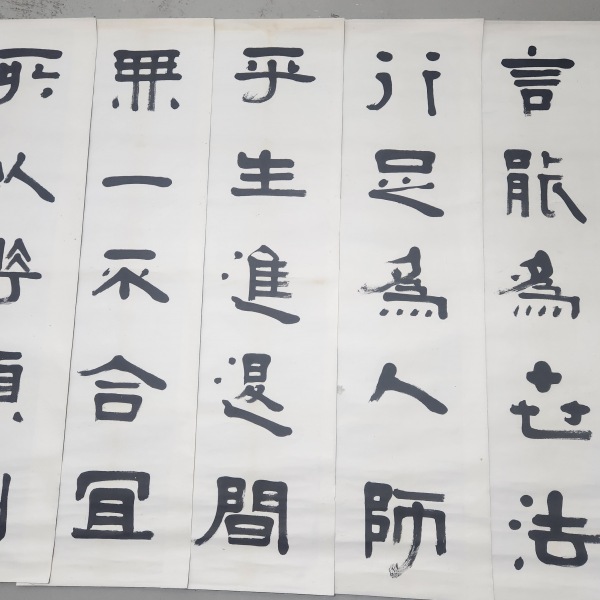 言能為世法
行足為人師
乎生進退間
無一不合宜
所以